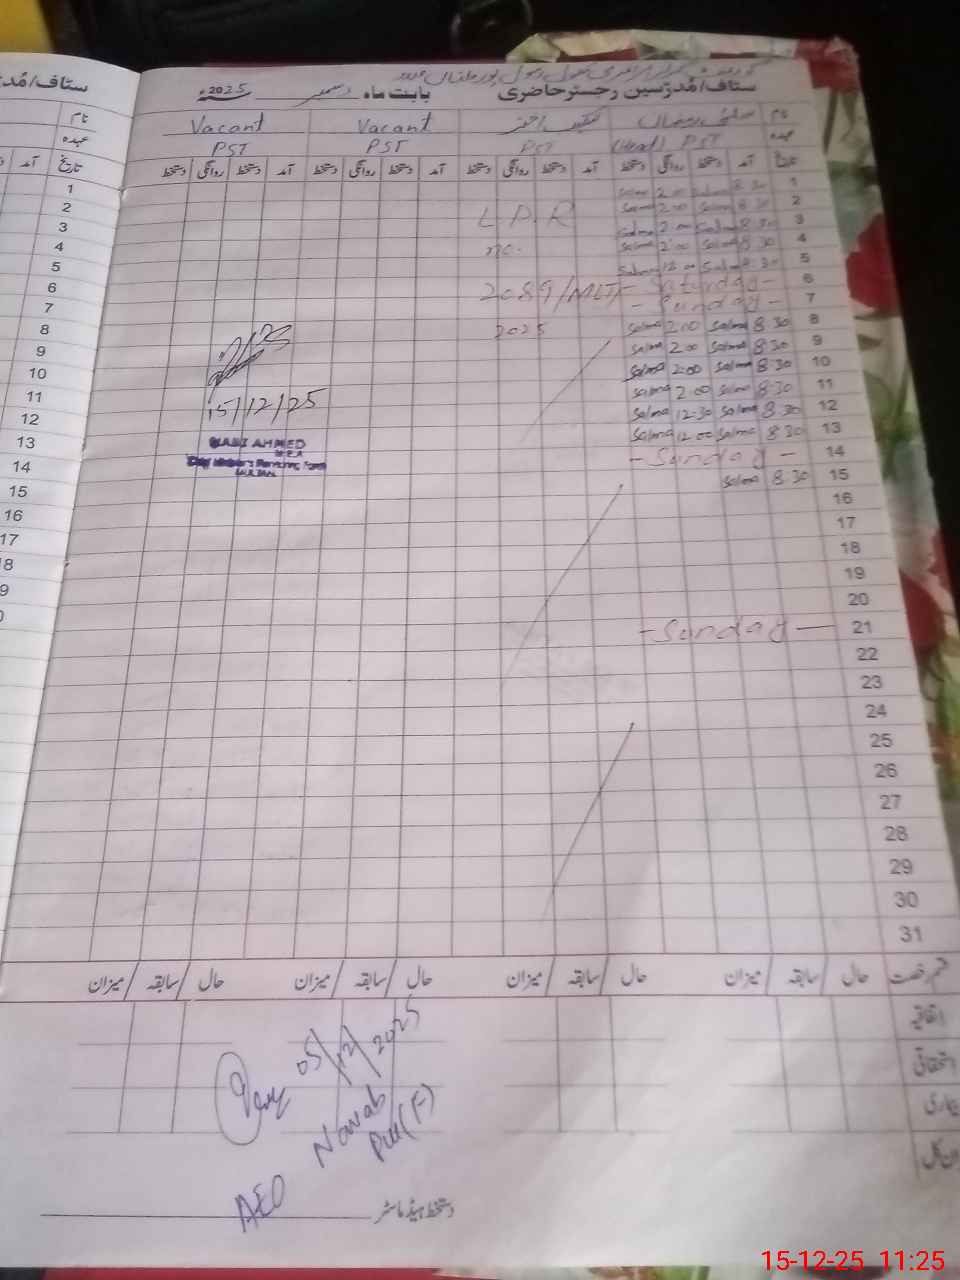 سٹاف/مُدرّسین رجسٹر حاضری بابت ماہ دسمبر سنہ 2025ء
نام Vacant Vacant
عہدہ PST (Head) PST PST PST
تاریخ آمد دستخط روانگی دستخط آمد دستخط روانگی دستخط آمد دستخط روانگی دستخط آمد دستخط روانگی دستخط
1 8:30 Salma 2:00 Salma
2 8:30 Salma 2:00 Salma L P R
3 8:30 Salma 2:00 Salma
4 8:30 Salma 2:00 Salma no.
5 8:30 Salma 12:00 Salma
6 - Saturday - 2089/MLT/
7 - Sunday -
8 8:30 Salma 2:00 Salma 2025
9 8:30 Salma 2:00 Salma
10 8:30 Salma 2:00 Salma
11 8:30 Salma 2:00 Salma
12 8:30 Salma 12:30 Salma
13 8:30 Salma 12:00 Salma
14 - Sunday -
15 8:30 Salma
16
17
18
19
20
21 - Sunday -
22
23
24
25
26
27
28
29
30
31
15/12/25
AHMED
M.E.A
MULTAN
قسم رخصت حال / سابقہ / میزان حال / سابقہ / میزان حال / سابقہ / میزان حال / سابقہ / میزان
اتفاقیہ
استحقاقی
بیماری
05/12/2025
Nawab
Pur(F)
AEO
دستخط ہیڈ ماسٹر
سٹاف/مُدر
نام
عہدہ
تاریخ آمد
1
2
3
4
5
6
7
8
9
10
11
12
13
14
15
16
17
18
15-12-25 11:25